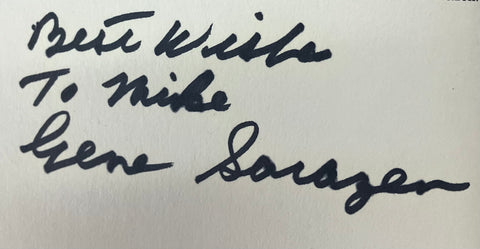 Best Wishes
To Mike
Gene Sarazen